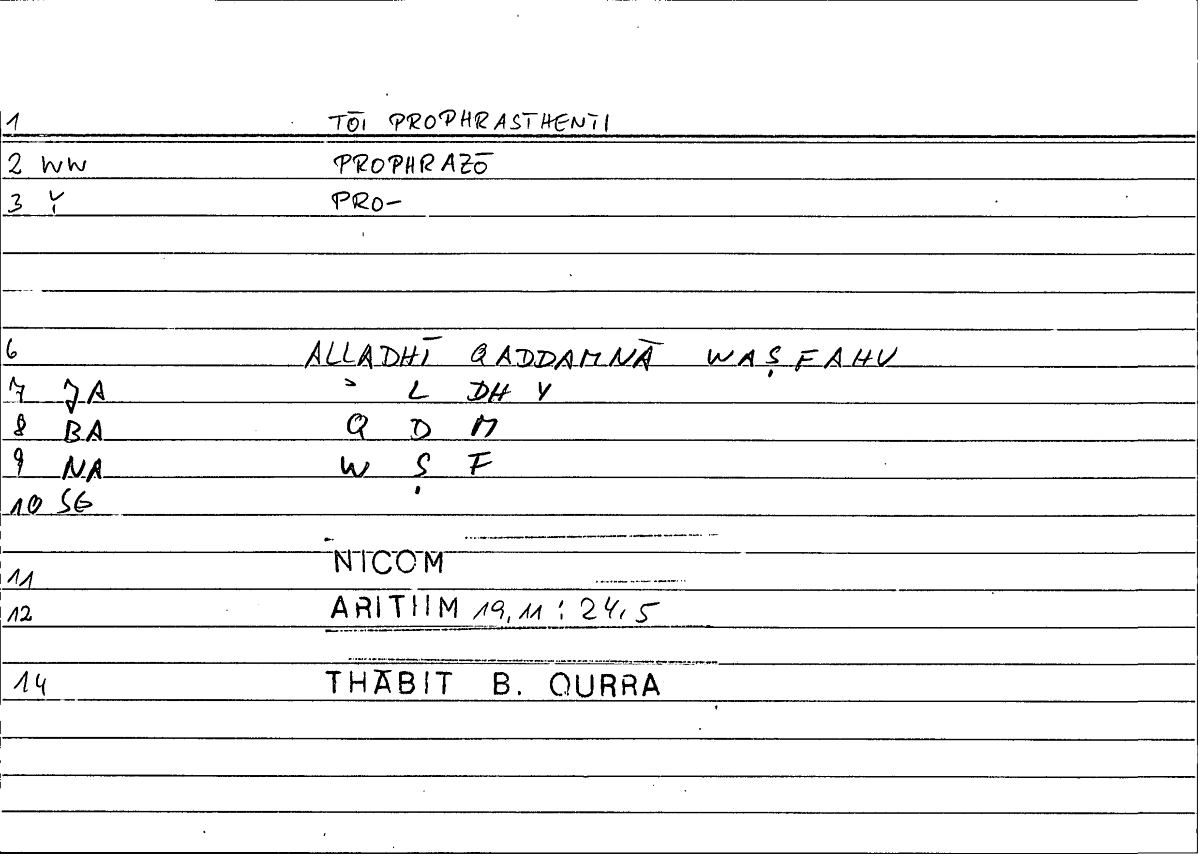 1 TŌI PROPHRASTHENTI
2 WW PROPHRAZŌ
3 Y PRO-
6 ALLADHĪ QADDAMNĀ WAṢFAHU
7 JA ʾ L DH Y
8 BA Q D M
9 NA W Ṣ F
10 SG
11 NICOM
12 ARITHM 19,11 : 24,5
14 THĀBIT B. QURRA